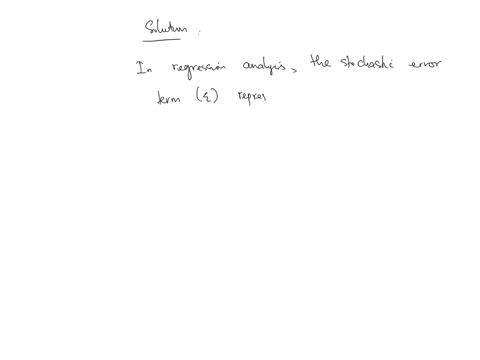 Solution :
In regression analysis, the stochastic error
term (ε) repres